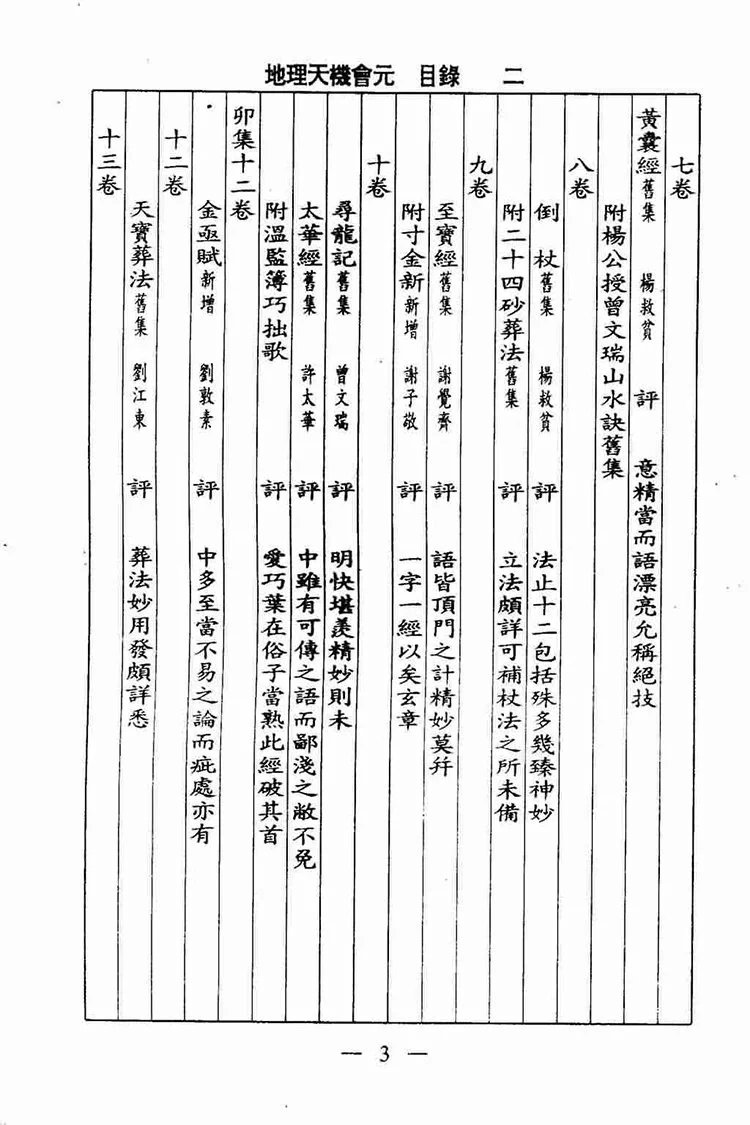 地理天機會元　目錄　二
七卷
黃囊經舊集　楊救貧　評　意精當而語漂亮允稱絕技
附楊公授曾文瑞山水訣舊集
八卷
倒杖舊集　楊救貧　評　法止十二包括殊多幾臻神妙
附二十四砂葬法舊集　評　立法頗詳可補杖法之所未備
九卷
至寶經舊集　謝覺齋　評　語皆頂門之計精妙莫幷
附寸金新新增　謝子敬　評　一字一經以矣玄章
十卷
尋龍記舊集　曾文瑞　評　明快堪羨精妙則未
太華經舊集　許太華　評　中雖有可傳之語而鄙淺之敝不免
附溫監簿巧拙歌　評　愛巧葉在俗子當熟此經破其首
卯集十二卷
金函賦新增　劉敦素　評　中多至當不易之論而疵處亦有
十二卷
天寶葬法舊集　劉江東　評　葬法妙用發頗詳悉
十三卷
— 3 —